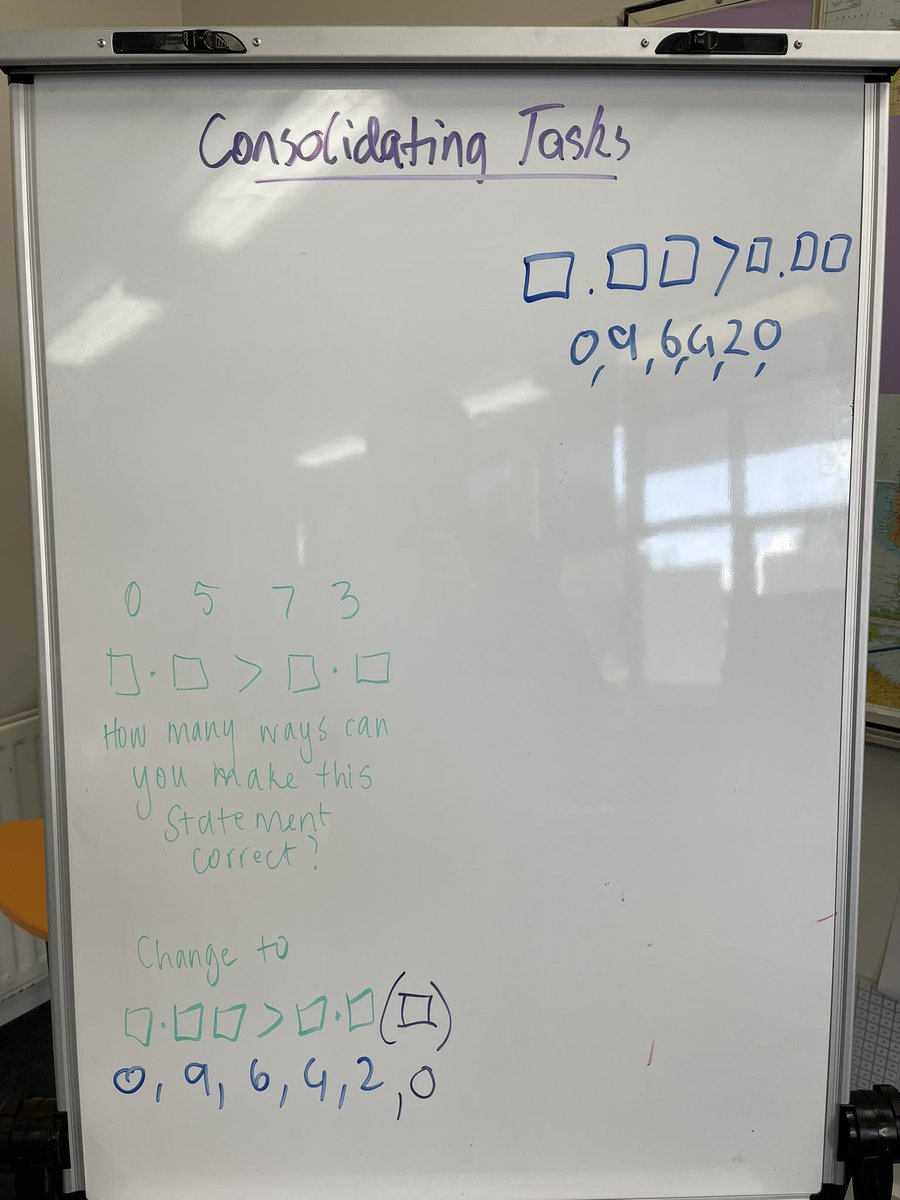 Consolidating Tasks
□.□□>□.□□
0,9,6,4,2,0
0 5 7 3
□.□ > □.□
How many ways can
you make this
statement
correct?
Change to
□.□□>□.□(□)
0, 9, 6, 4, 2, 0